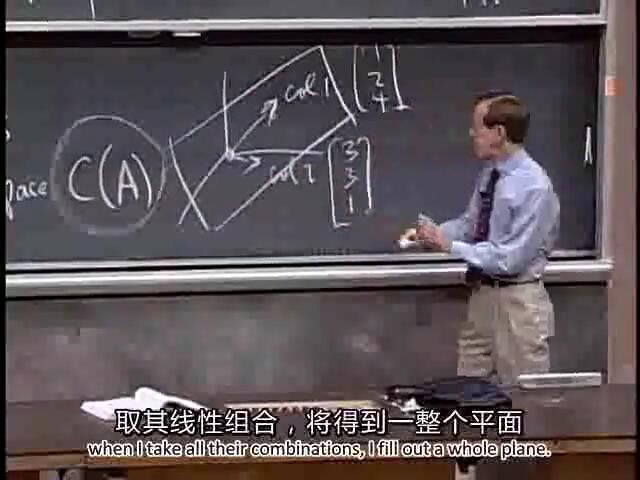 col 1
1
2
4
pace C(A)
col 2
3
3
1
A
取其线性组合，将得到一整个平面
when I take all their combinations, I fill out a whole plane.